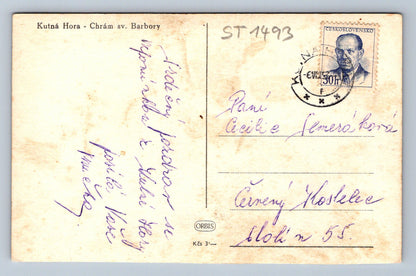 Kutná Hora - Chrám sv. Barbory
ST 1493
ČESKOSLOVENSKO
Srdečný pozdrav se
vzpomínkou z Kutné Hory
posílá Vaše
Paní
Cecilie Semeráková
Červený Kostelec
ORBIS
Kčs 3'—